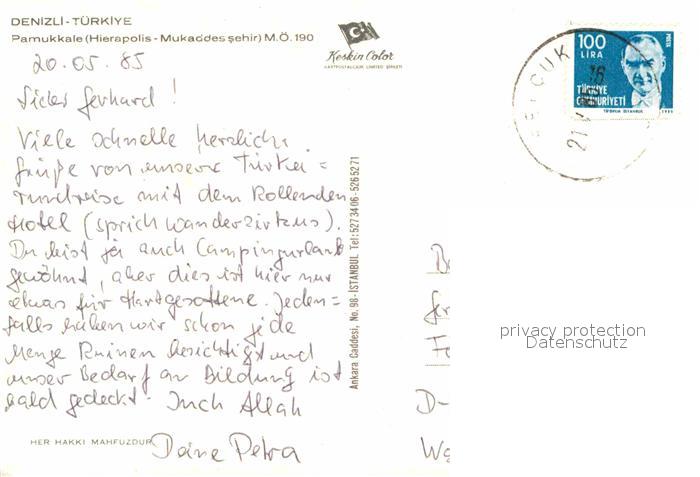 DENIZLİ - TÜRKİYE
Pamukkale (Hierapolis - Mukaddes şehir) M.Ö. 190
20.05.85
Lieber Gerhard!
Viele schnelle herzliche
Grüße von unserer Türkei=
rundreise mit dem Rollenden
Hotel (sprich Wanderzirkus).
Du bist ja auch Campingurlaub
gewöhnt, aber dies ist hier nur
etwas für Hartgesottene. Jeden=
falls haben wir schon jede
Menge Ruinen besichtigt und
unser Bedarf an Bildung ist
bald gedeckt. Inch Allah
Deine Petra
HER HAKKI MAHFUZDUR
Keskin Color
KARTPOSTALCILIK LIMITED ŞİRKETİ
Ankara Caddesi, No. 98 - İSTANBUL Tel: 527 34 06 - 526 52 71
SELÇUK
21
16
100
LİRA
POSTA
TÜRKİYE
CUMHURİYETİ
D-
privacy protection
Datenschutz